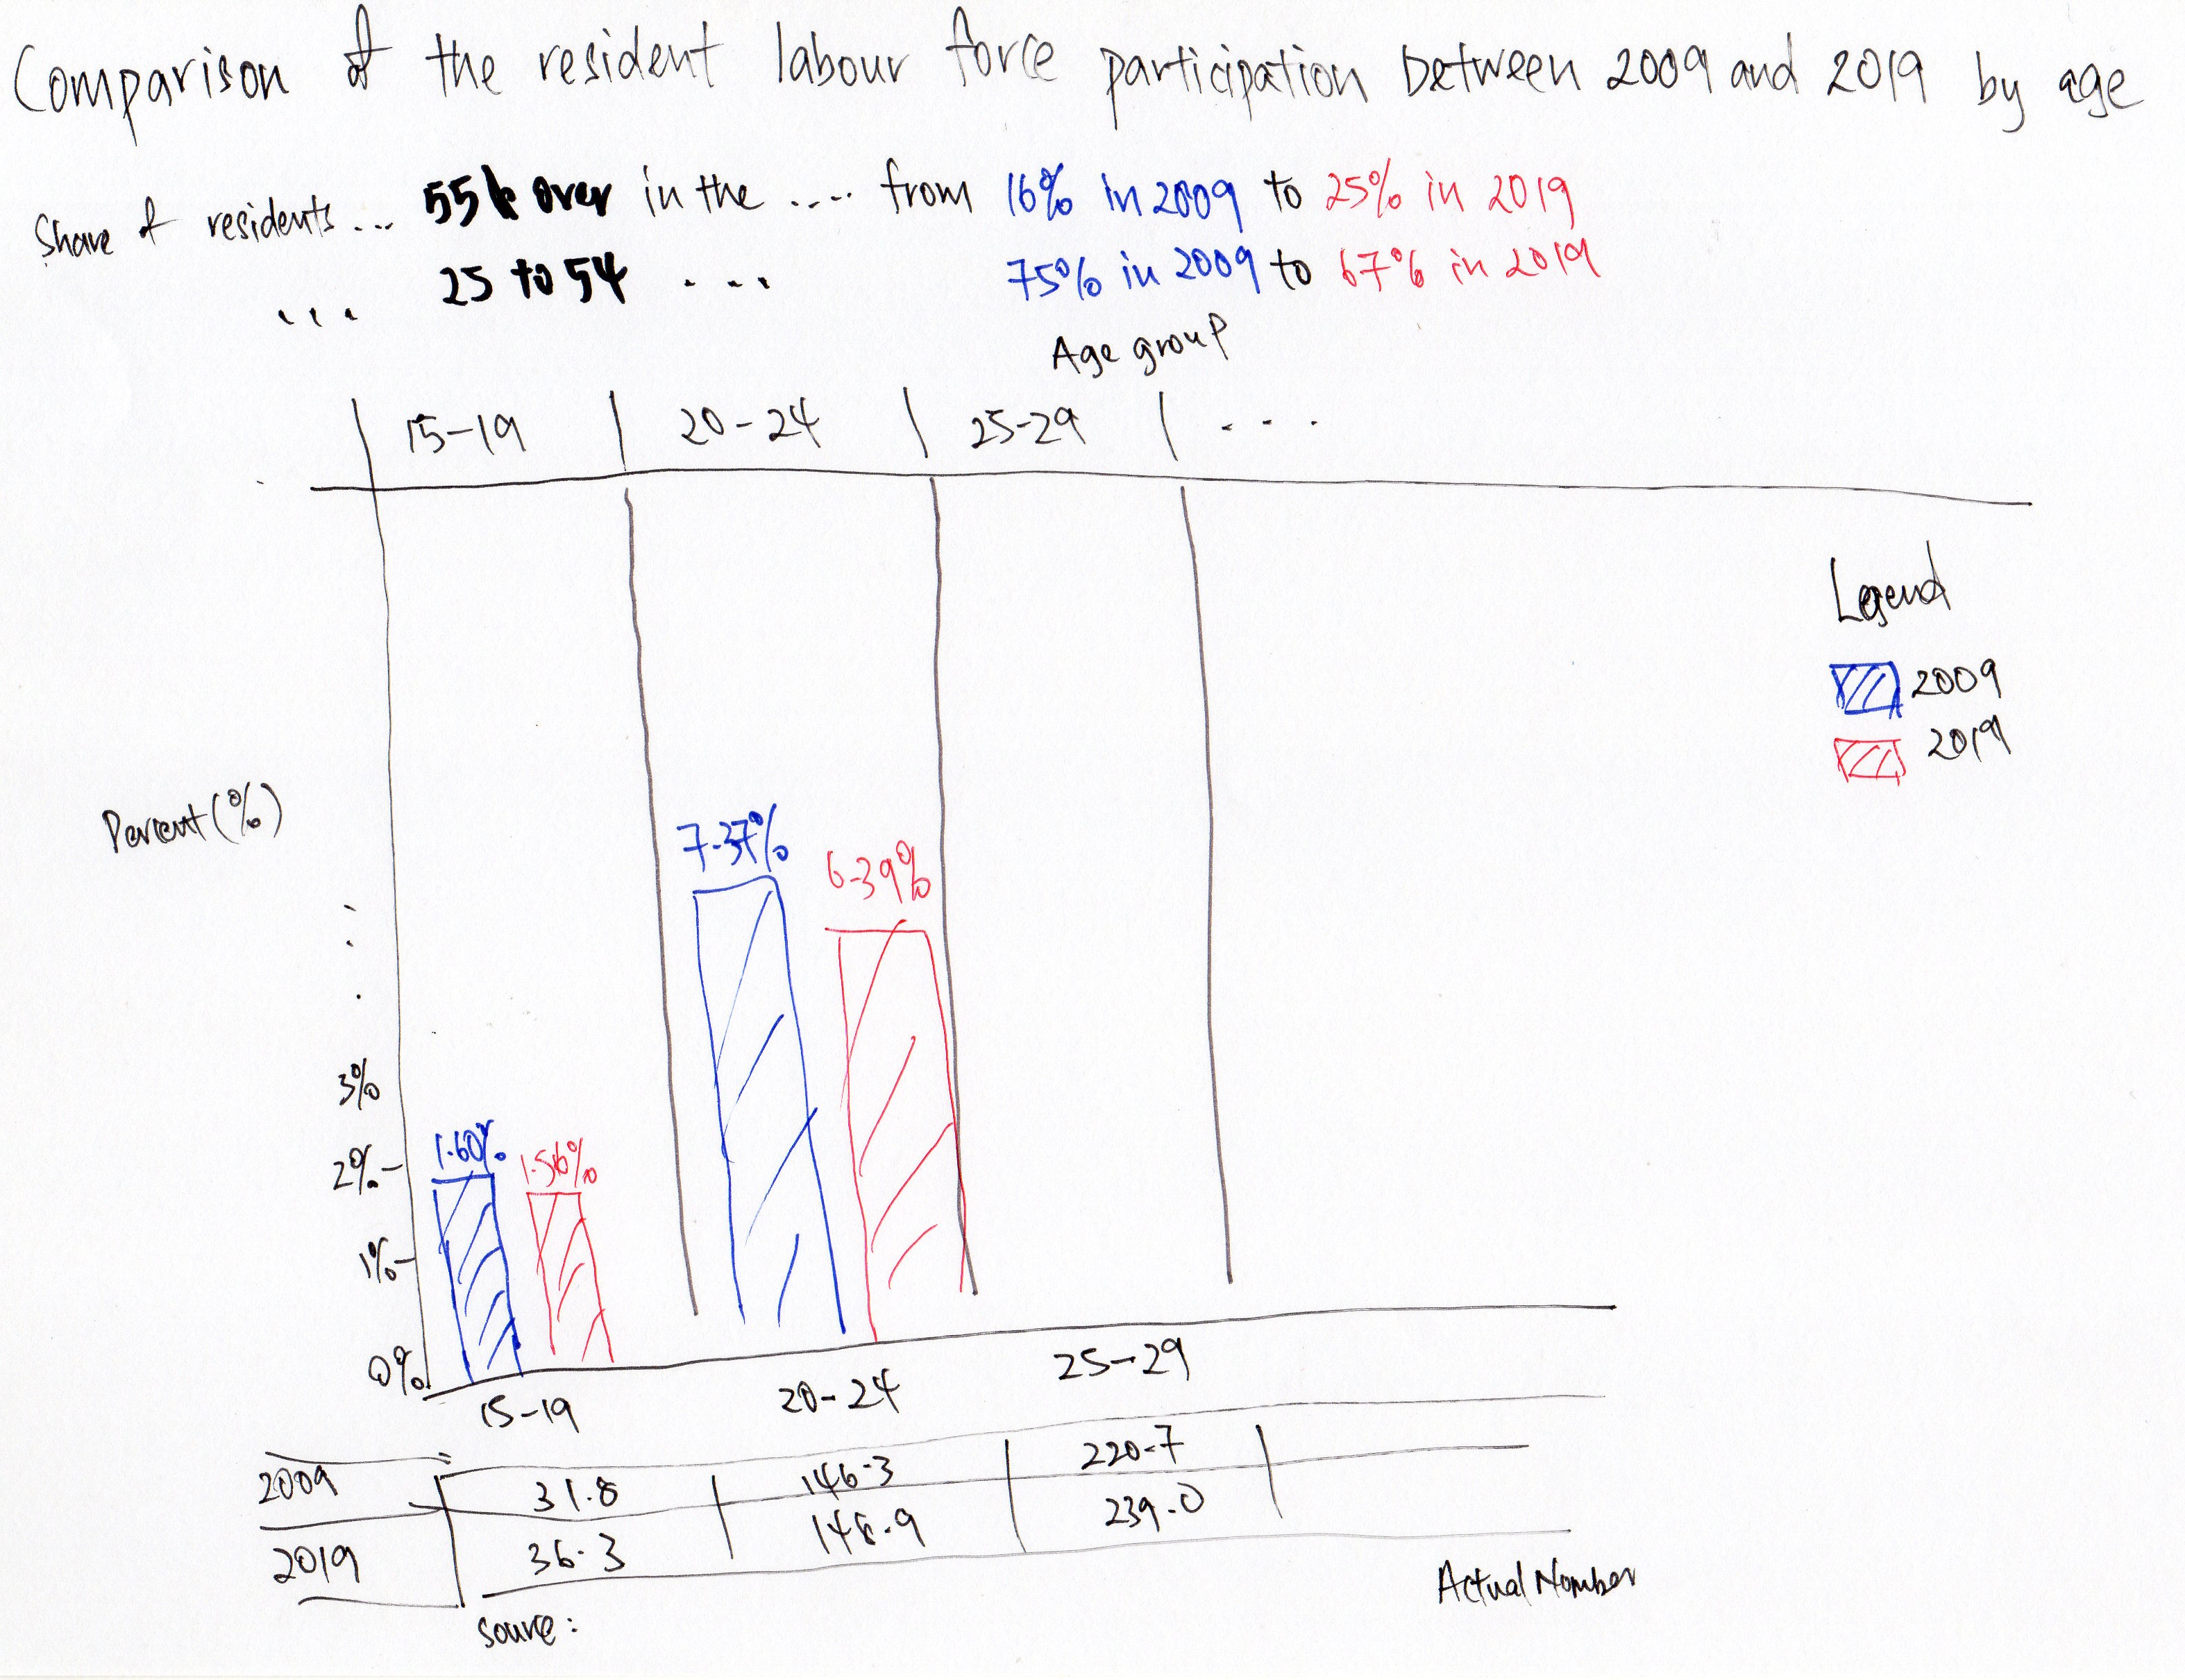 Comparison of the resident labour force participation between 2009 and 2019 by age
Share of residents ... 55 & over in the .... from 16% in 2009 to 25% in 2019
... 25 to 54 ... 75% in 2009 to 67% in 2019
Age group
15-19 20-24 25-29 ...
Legend
2009
2019
Percent (%)
7.37%
6.39%
3%
1.60%
1.56%
2%
1%
0%
15-19 20-24 25-29
2009 31.8 146.3 220.7
2019 36.3 148.9 239.0
Actual Number
source: